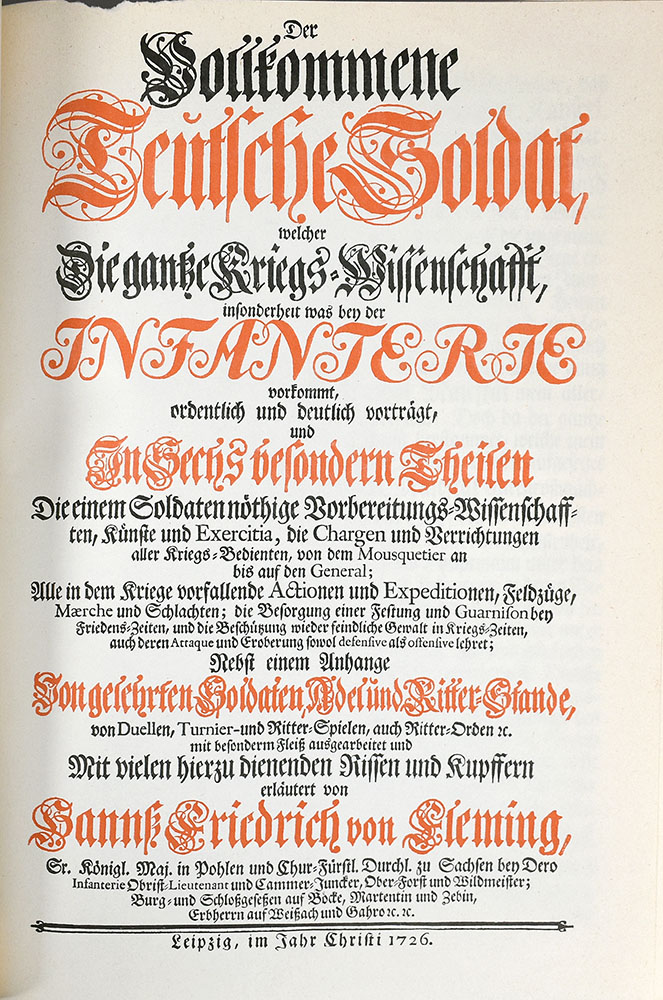 Der
Vollkommene
Teutsche Soldat,
welcher
Die gantze Kriegs-Wissenschafft,
insonderheit was bey der
INFANTERIE
vorkommt,
ordentlich und deutlich vorträgt,
und
In Sechs besondern Theilen
Die einem Soldaten nöthige Vorbereitungs-Wissenschaff-
ten, Künste und Exercitia, die Chargen und Verrichtungen
aller Kriegs-Bedienten, von dem Mousquetier an
bis auf den General;
Alle in dem Kriege vorfallende Actionen und Expeditionen, Feldzüge,
Mærche und Schlachten; die Besorgung einer Festung und Guarnison bey
Friedens-Zeiten, und die Beschützung wieder feindliche Gewalt in Kriegs-Zeiten,
auch deren Attaque und Eroberung sowol defensive als offensive lehret;
Nebst einem Anhange
Von gelehrten Soldaten, Adel und Ritter-Stande,
von Duellen, Turnier- und Ritter-Spielen, auch Ritter-Orden ꝛc.
mit besonderm Fleiß ausgearbeitet und
Mit vielen hierzu dienenden Rissen und Kupffern
erläutert von
Hannß Friedrich von Fleming,
Sr. Königl. Maj. in Pohlen und Chur-Fürstl. Durchl. zu Sachsen bey Dero
Infanterie Obrist-Lieutenant und Cammer-Juncker, Ober-Forst und Wildmeister;
Burg- und Schloßgesessen auf Böcke, Martentin und Zebin,
Erbherrn auf Weißach und Gahro ꝛc. ꝛc.
Leipzig, im Jahr Christi 1726.